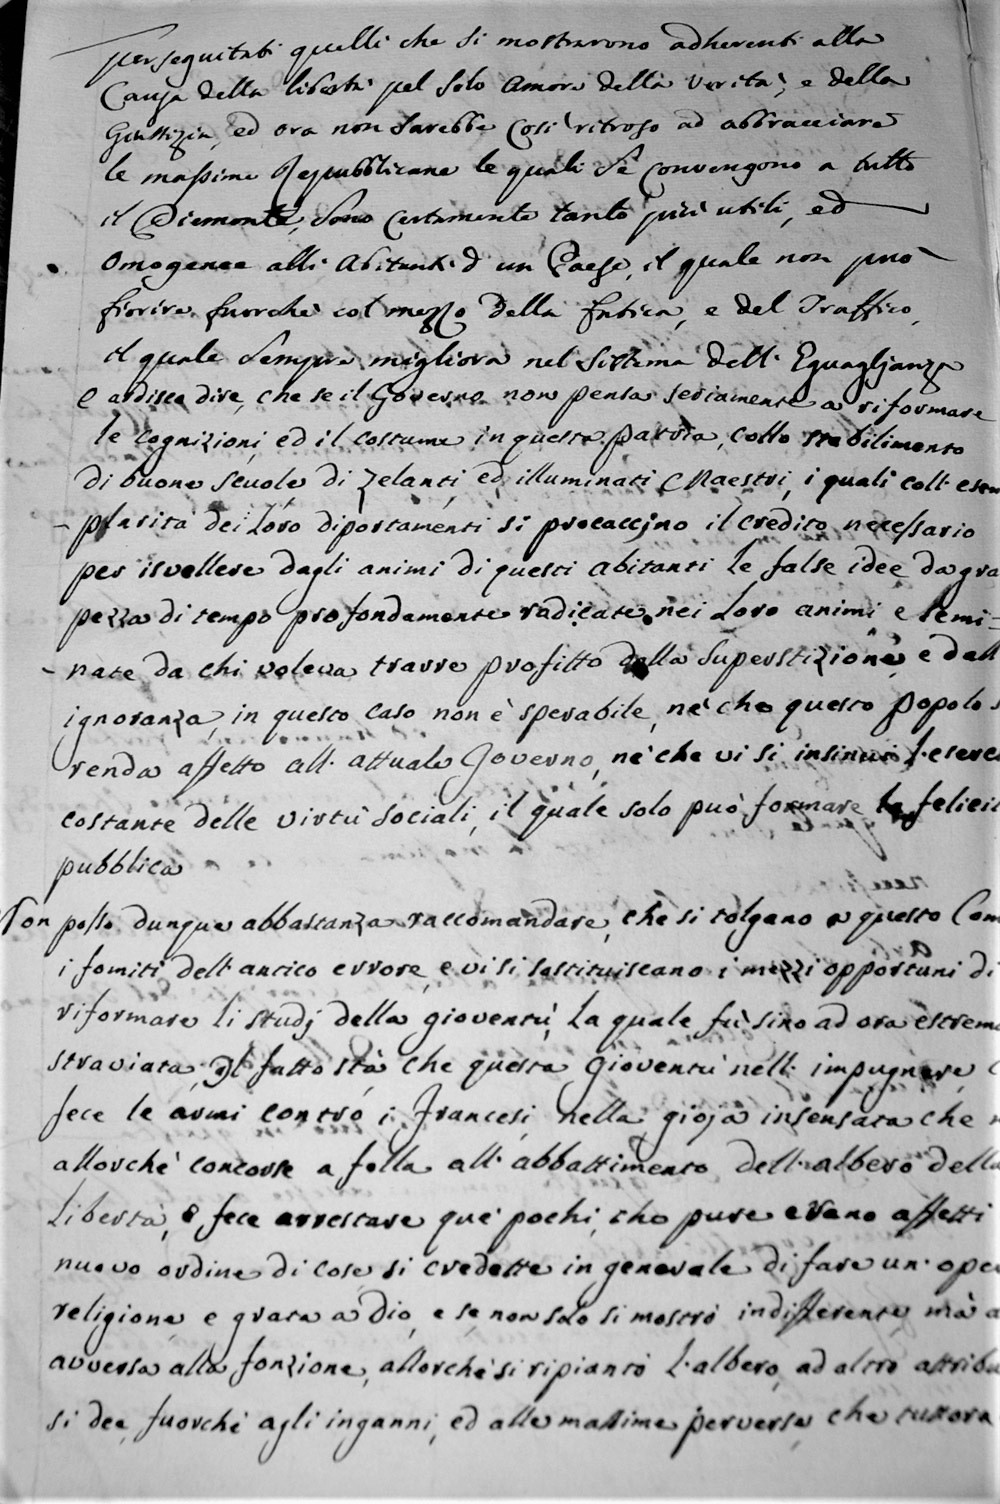 perseguitati quelli che si mostrarono adherenti alla
Causa della libertà pel solo amore della verità, e della
Giustizia, ed ora non sarebbe così ritroso ad abbracciare
le massime Repubblicane le quali se convengono a tutto
il Piemonte, sono certamente tanto più utili, ed
omogenee alli Abitanti d'un Paese, il quale non può
fiorire fuorché col mezzo della fatica, e del Traffico,
il quale sempre migliora nel sistema dell'Eguaglianza
e ardisco dire, che se il Governo non pensa seriamente a riformare
le cognizioni, ed il costume in questa patria, collo stabilimento
di buone scuole, di zelanti, ed illuminati Maestri, i quali coll'esem
- plarità dei loro diportamenti si procaccino il credito necessario
per isvellere dagli animi di questi abitanti le false idee da gra
pezza di tempo profondamente radicate nei loro animi e semi=
- nate da chi voleva trarre profitto dalla superstizione, e dall
ignoranza, in questo caso non è sperabile, né che questo popolo s
renda affetto all'attuale Governo, né che vi si insinui l'eserci
costante delle virtù sociali, il quale solo può formare la felicit
pubblica
Non posso dunque abbastanza raccomandare, che si tolgano a questo Com
i fomiti dell'antico errore, e vi si sostituiscano i mezzi opportuni di
riformare li studj della gioventù, la quale fù sino ad ora estrema
straviata, Il fatto stà che questa Gioventù nell'impugnare, c
fece le armi contro i Francesi, nella gioja insensata che
allorché concorse a folla all'abbattimento dell'albero della
Libertà, e fece arrestare que' pochi, che pure erano affetti
nuovo ordine di cose si credette in generale di fare un'oper
religiona e grata a Dio, e se non solo si mostrò indifferente, mà a
avversa alla fonzione, allorché si ripiantò l'albero, ad altro attribu
si dee, fuorché agli inganni, ed alle massime perverse, che tuttora